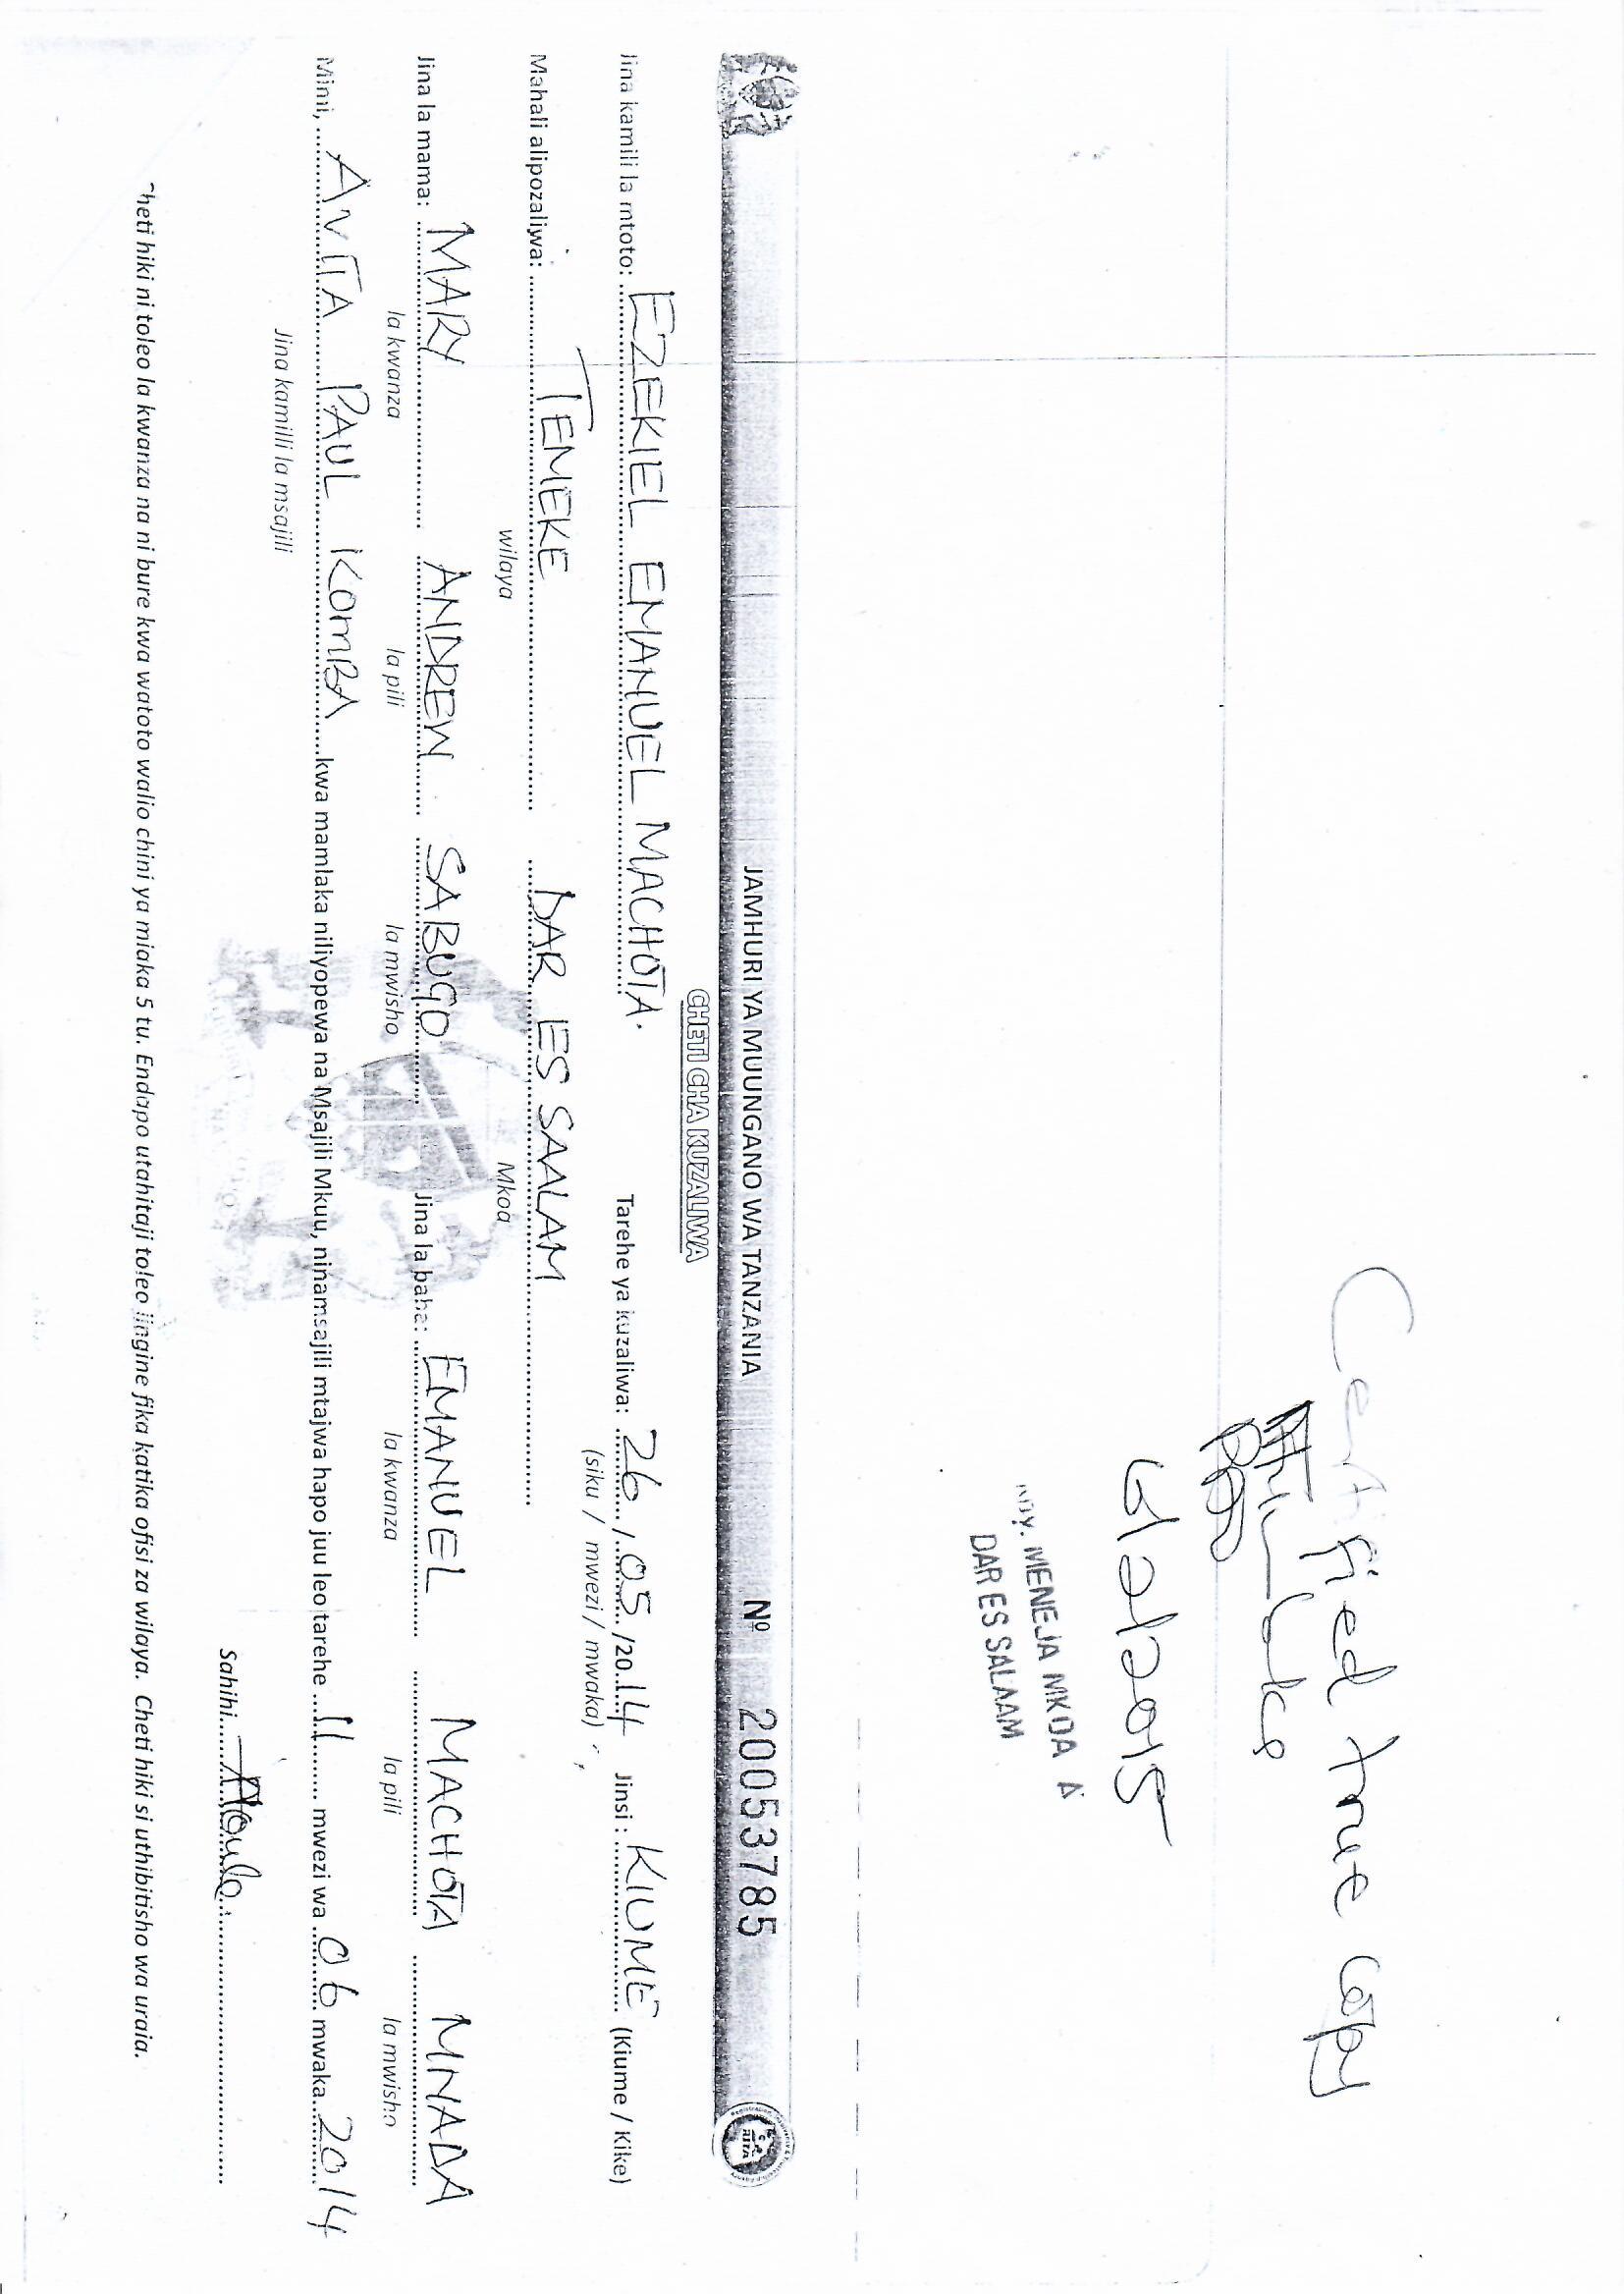 Certified true copy
DAR ES SALAAM
JAMHURI YA MUUNGANO WA TANZANIA Nº 20053785
CHETI CHA KUZALIWA
RITA
Jina kamili la mtoto: EZEKIEL EMANUEL MACHOTA. Tarehe ya kuzaliwa: 26 / 05 /2014 Jinsi: KIUME (Kiume / Kike)
(siku / mwezi / mwaka)
Mahali alipozaliwa: TEMEKE DAR ES SAALAM
wilaya Mkoa
Jina la mama: MARY ANDREW SABUGO Jina la baba: EMANUEL MACHOTA MNADA
la kwanza la pili la mwisho la kwanza la pili la mwisho
Mimi, AVITA PAUL KOMBA kwa mamlaka niliyopewa na Msajili Mkuu, ninamsajili mtajwa hapo juu leo tarehe 11 mwezi wa 06 mwaka 2014
Jina kamilli la msajili
Sahihi
heti hiki ni toleo la kwanza na ni bure kwa watoto walio chini ya miaka 5 tu. Endapo utahitaji toleo lingine fika katika ofisi za wilaya. Cheti hiki si uthibitisho wa uraia.